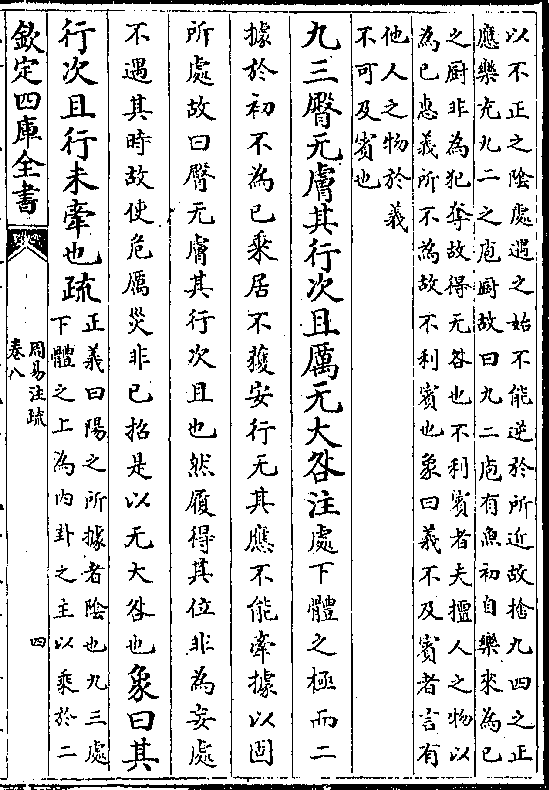 以不正之陰處遇之始不能逆於所近故捨九四之正
應樂充九二之庖厨故曰九二庖有魚初自樂來為已
之厨非為犯奪故得无咎也不利賓者夫擅人之物以
為已惠義所不為故不利賓也象曰義不及賓者言有
他人之物於義
不可及賓也
九三臀无膚其行次且厲无大咎注處下體之極而二
據於初不為已乘居不獲安行无其應不能牽據以固
所處故曰臀无膚其行次且也然履得其位非為妄處
不遇其時故使危厲災非已招是以无大咎也象曰其
行次且行未牽也疏
正義曰陽之所據者陰也九三處
下體之上為内卦之主以乘於二
欽定四庫全書
周易注疏
卷八
四